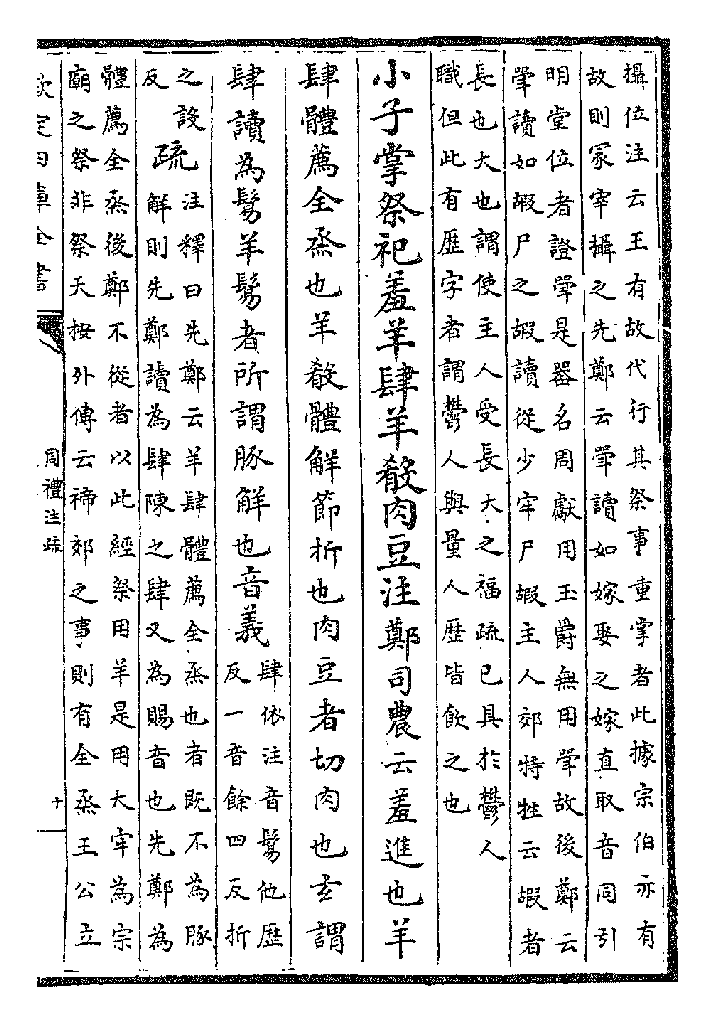 攝位注云王有故代行其祭事重掌者此據宗伯亦有
故則冢宰攝之先鄭云斝讀如嫁娶之嫁直取音同引
明堂位者證斝是器名周獻用玉爵無用斝故後鄭云
斝讀如嘏尸之嘏讀從少牢尸嘏主人郊特牲云嘏者
長也大也謂使主人受長大之福疏已具於鬱人
職但此有歷字者謂鬱人與量人歷皆飲之也
小子掌祭祀羞羊肆羊殽肉豆注鄭司農云羞進也羊
肆體薦全烝也羊殽體解節折也肉豆者切肉也玄謂
肆讀為鬄羊鬄者所謂豚解也音義
肆依注音鬄他歷
反一音餘四反折
之設
反
疏
注釋曰先鄭云羊肆體薦全烝也者既不為豚
解則先鄭讀為肆陳之肆又為賜音也先鄭為
體薦全烝後鄭不從者以此經祭用羊是用大牢為宗
廟之祭非祭天按外傳云禘郊之事則有全烝王公立
欽定四庫全書
周禮注疏
十